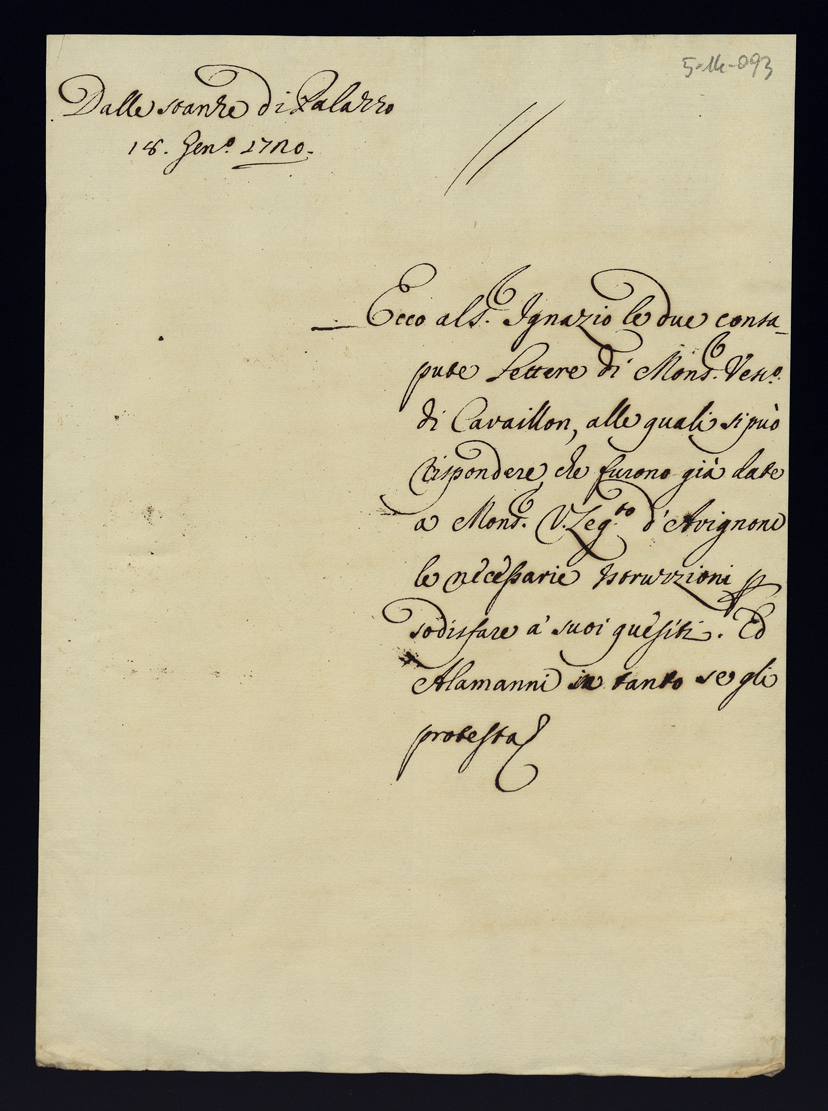 5-14-093
Dalle stanze di Palazzo
18. Genº. 1720.
Ecco al Sr. Ignazio le due consa-
pute Lettere di Monsr. Vescº.
di Cavaillon, alle quali si può
rispondere che furono già date
a Monsr. V. Legto. d'Avignone
le necessarie Istruzzioni p
sodisfare a' suoi quesiti. Ed
Alamanni in tanto se gli
protesta